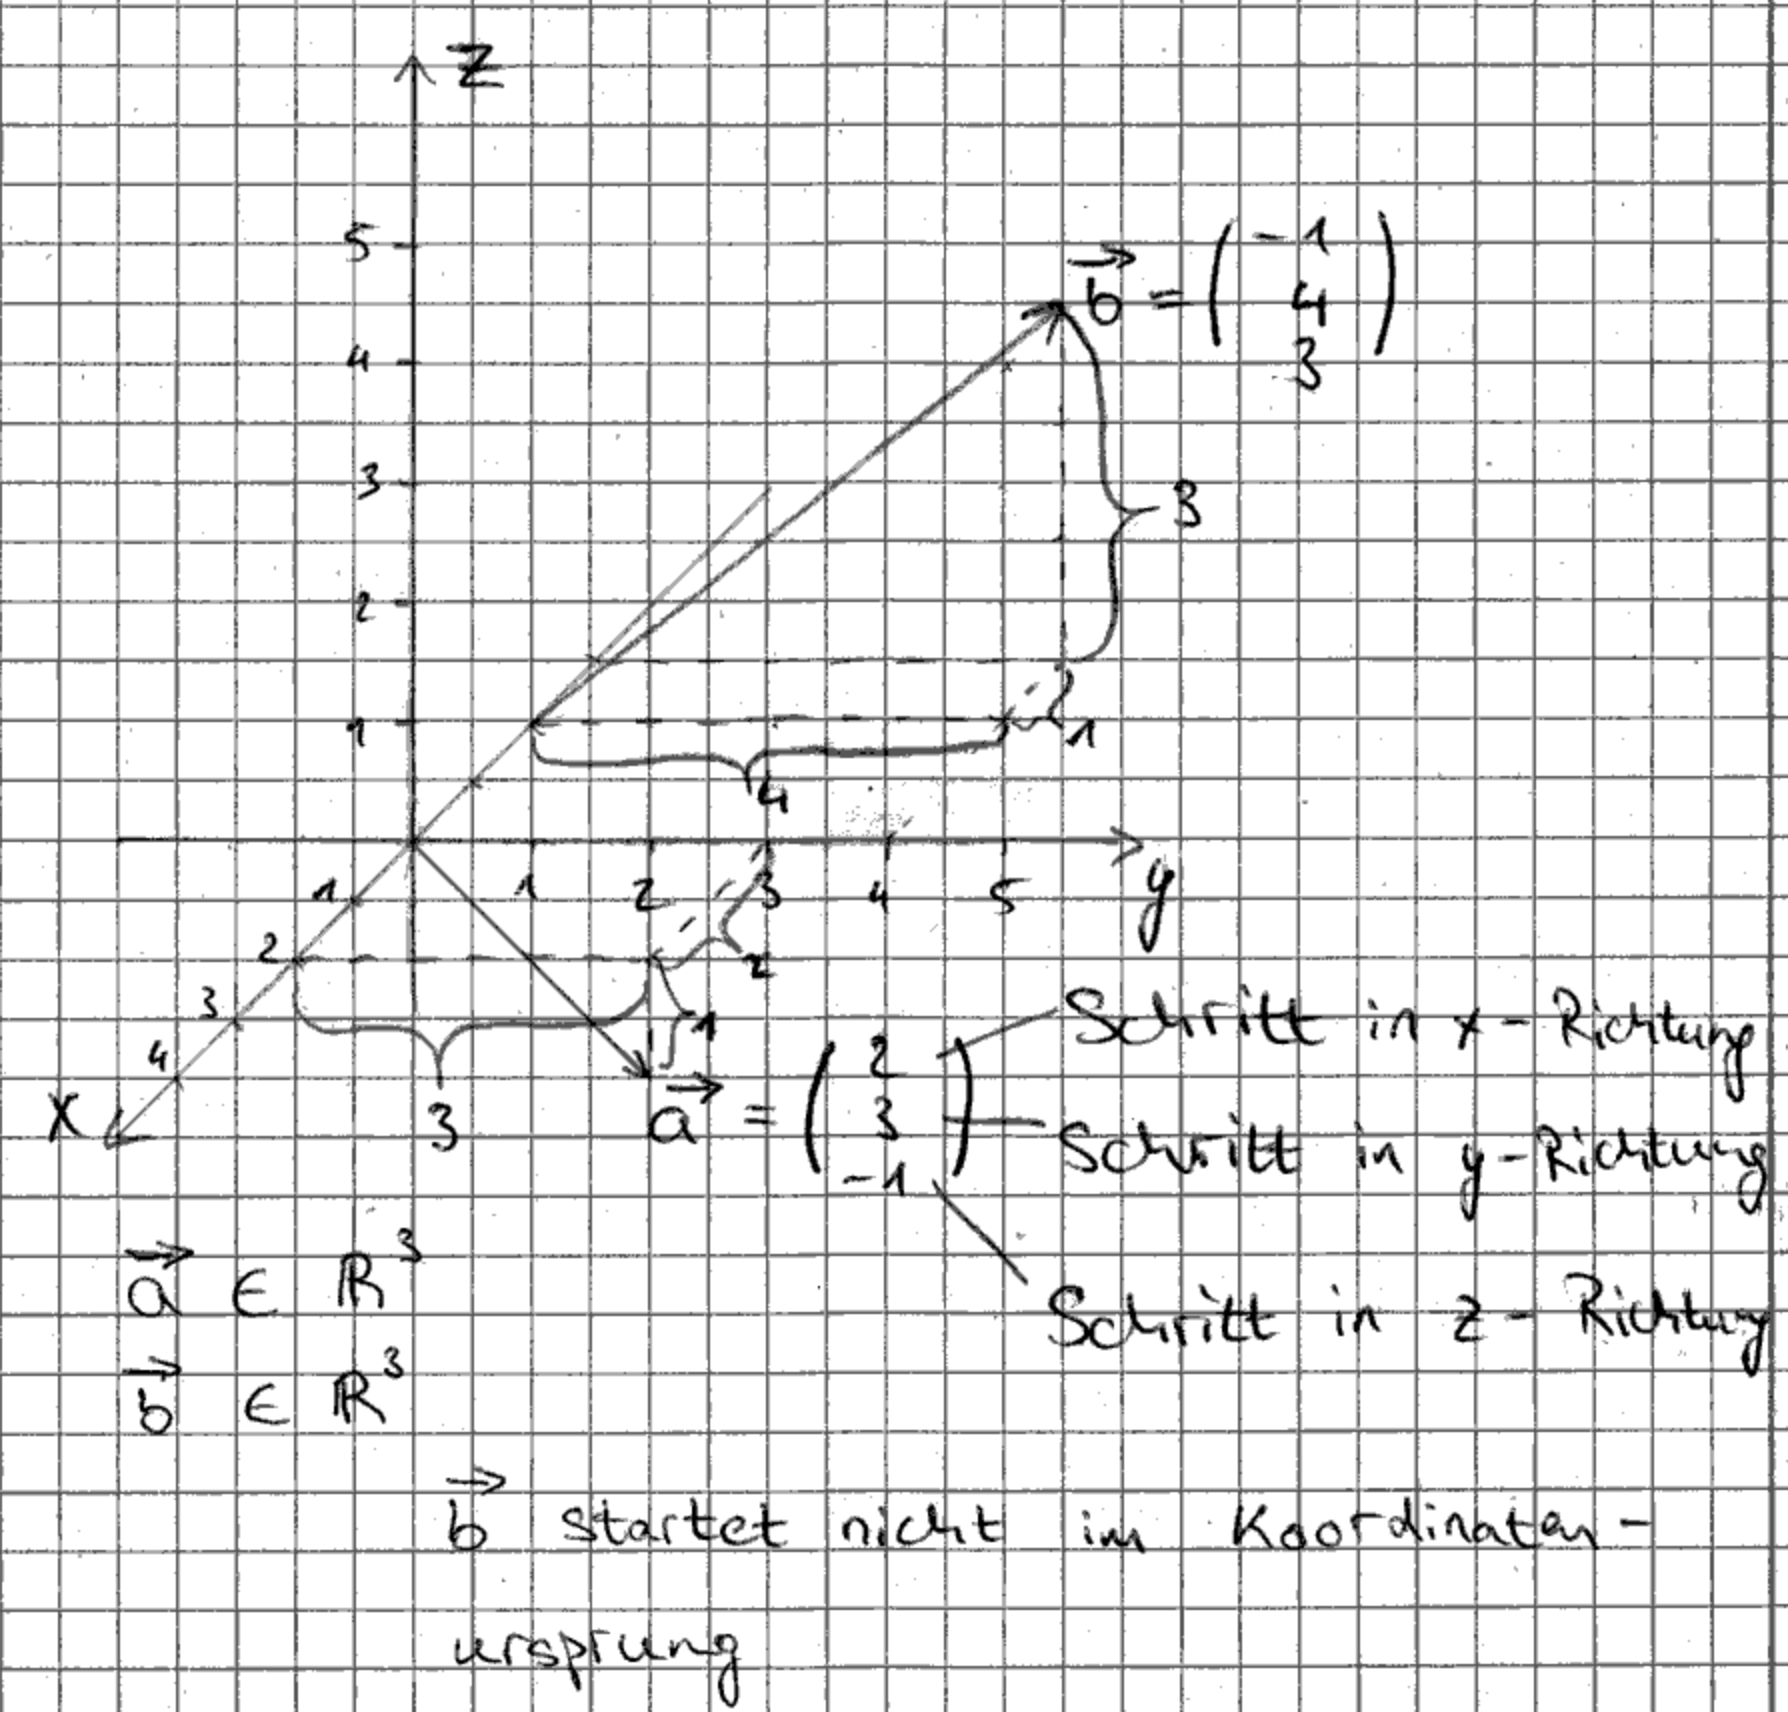 z
5
b⃗ = ( -1
4
3 )
4
3
3
2
1
1
4
y
1
1
2
3
4
5
2
2
3
1
4
x
3
a⃗ = ( 2
3
-1 )
Schritt in x-Richtung
Schritt in y-Richtung
Schritt in z-Richtung
a⃗ ∈ ℝ³
b⃗ ∈ ℝ³
b⃗ startet nicht im Koordinaten-
ursprung